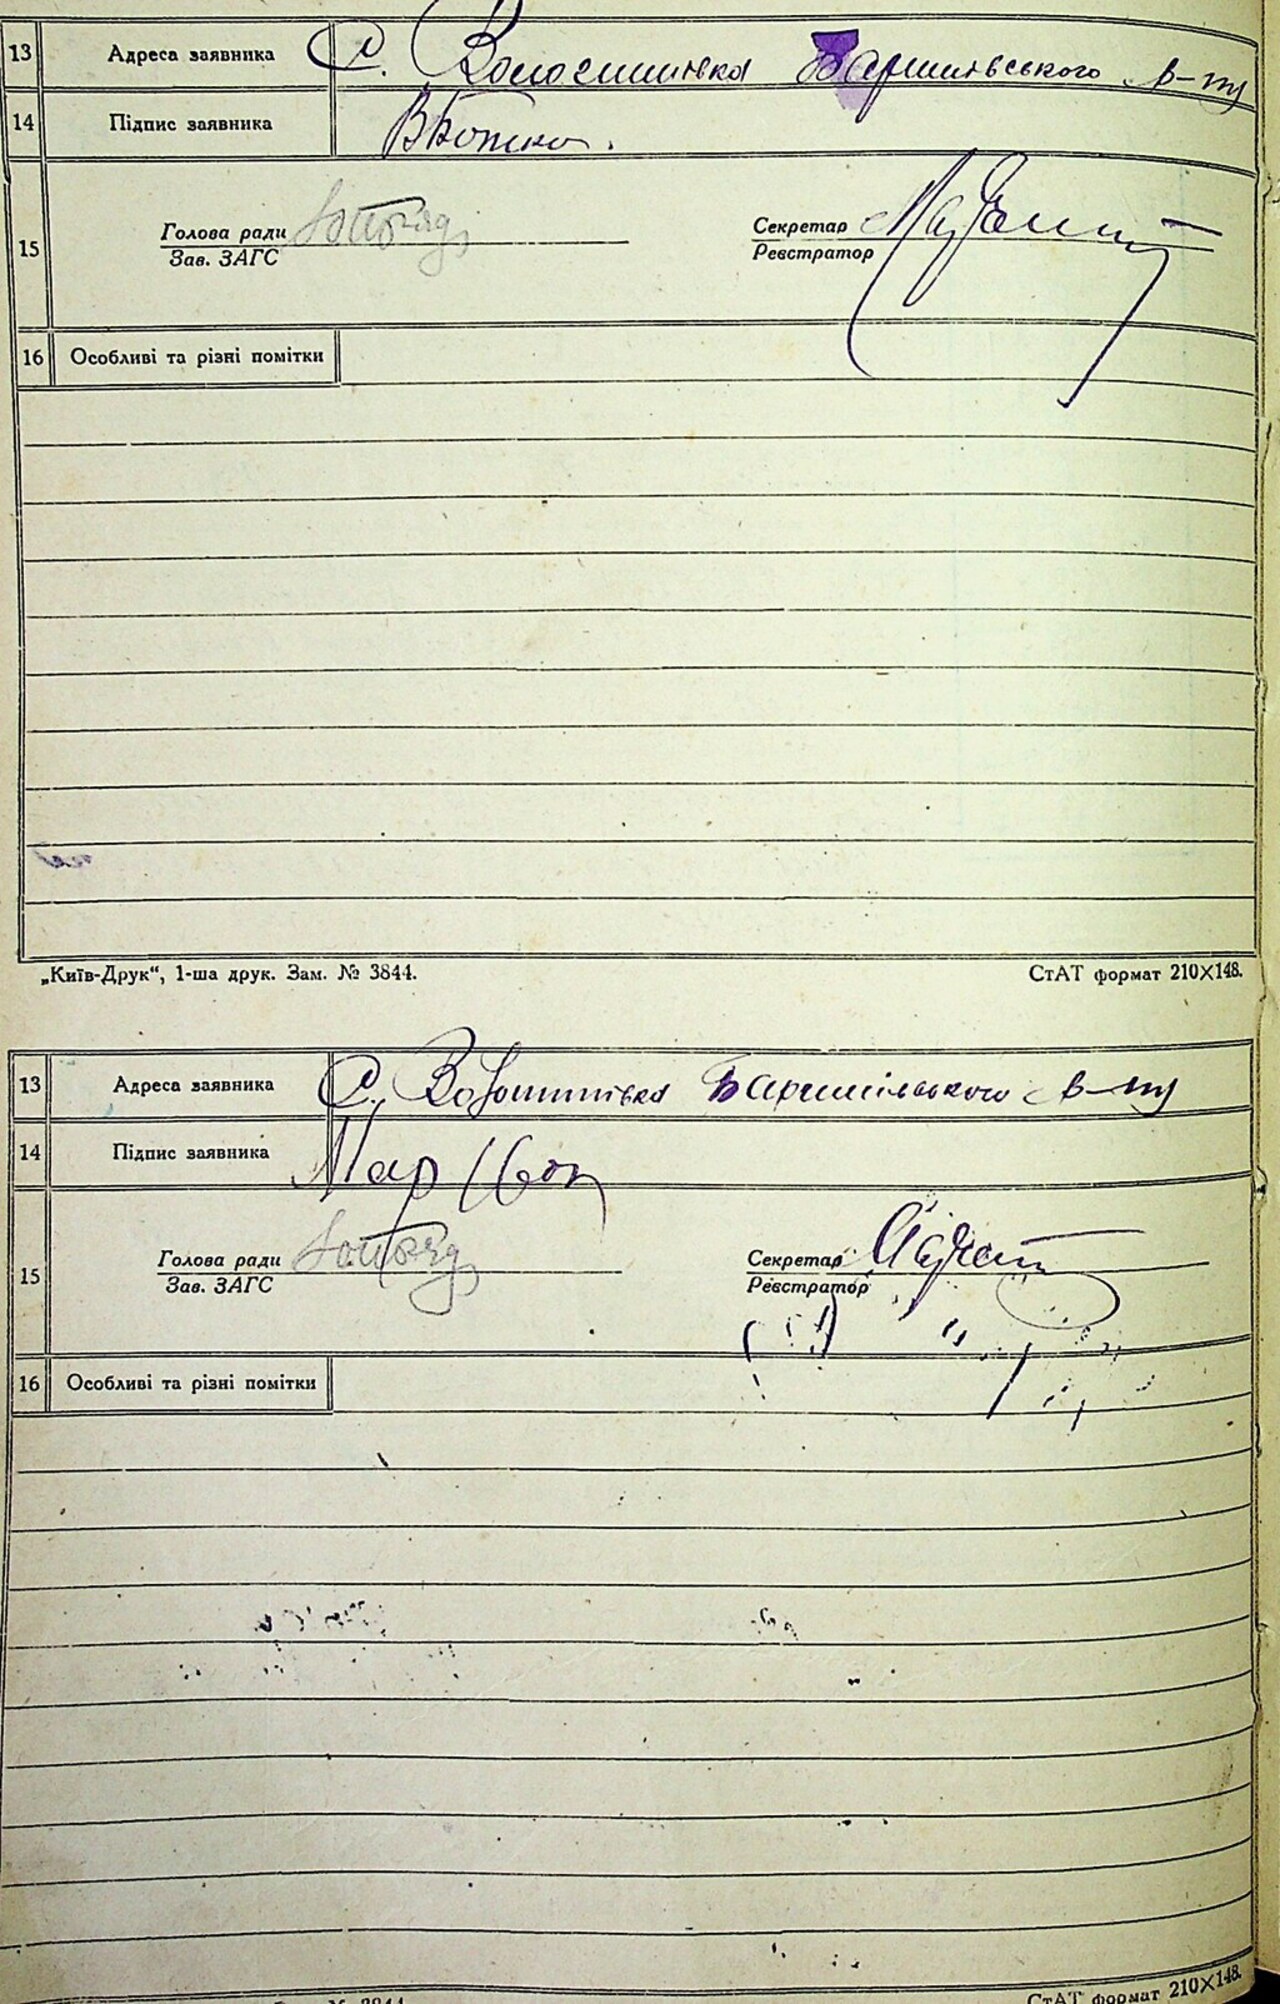 13 Адреса заявника С. Волошинівка Баришівського р-ну
14 Підпис заявника
15 Голова ради Секретар
Зав. ЗАГС Реєстратор
16 Особливі та різні помітки
„Київ-Друк“, 1-ша друк. Зам. № 3844. СтАТ формат 210×148.
13 Адреса заявника С. Волошинівка Баришівського р-ну
14 Підпис заявника
15 Голова ради Секретар
Зав. ЗАГС Реєстратор
16 Особливі та різні помітки
СтАТ формат 210×148.